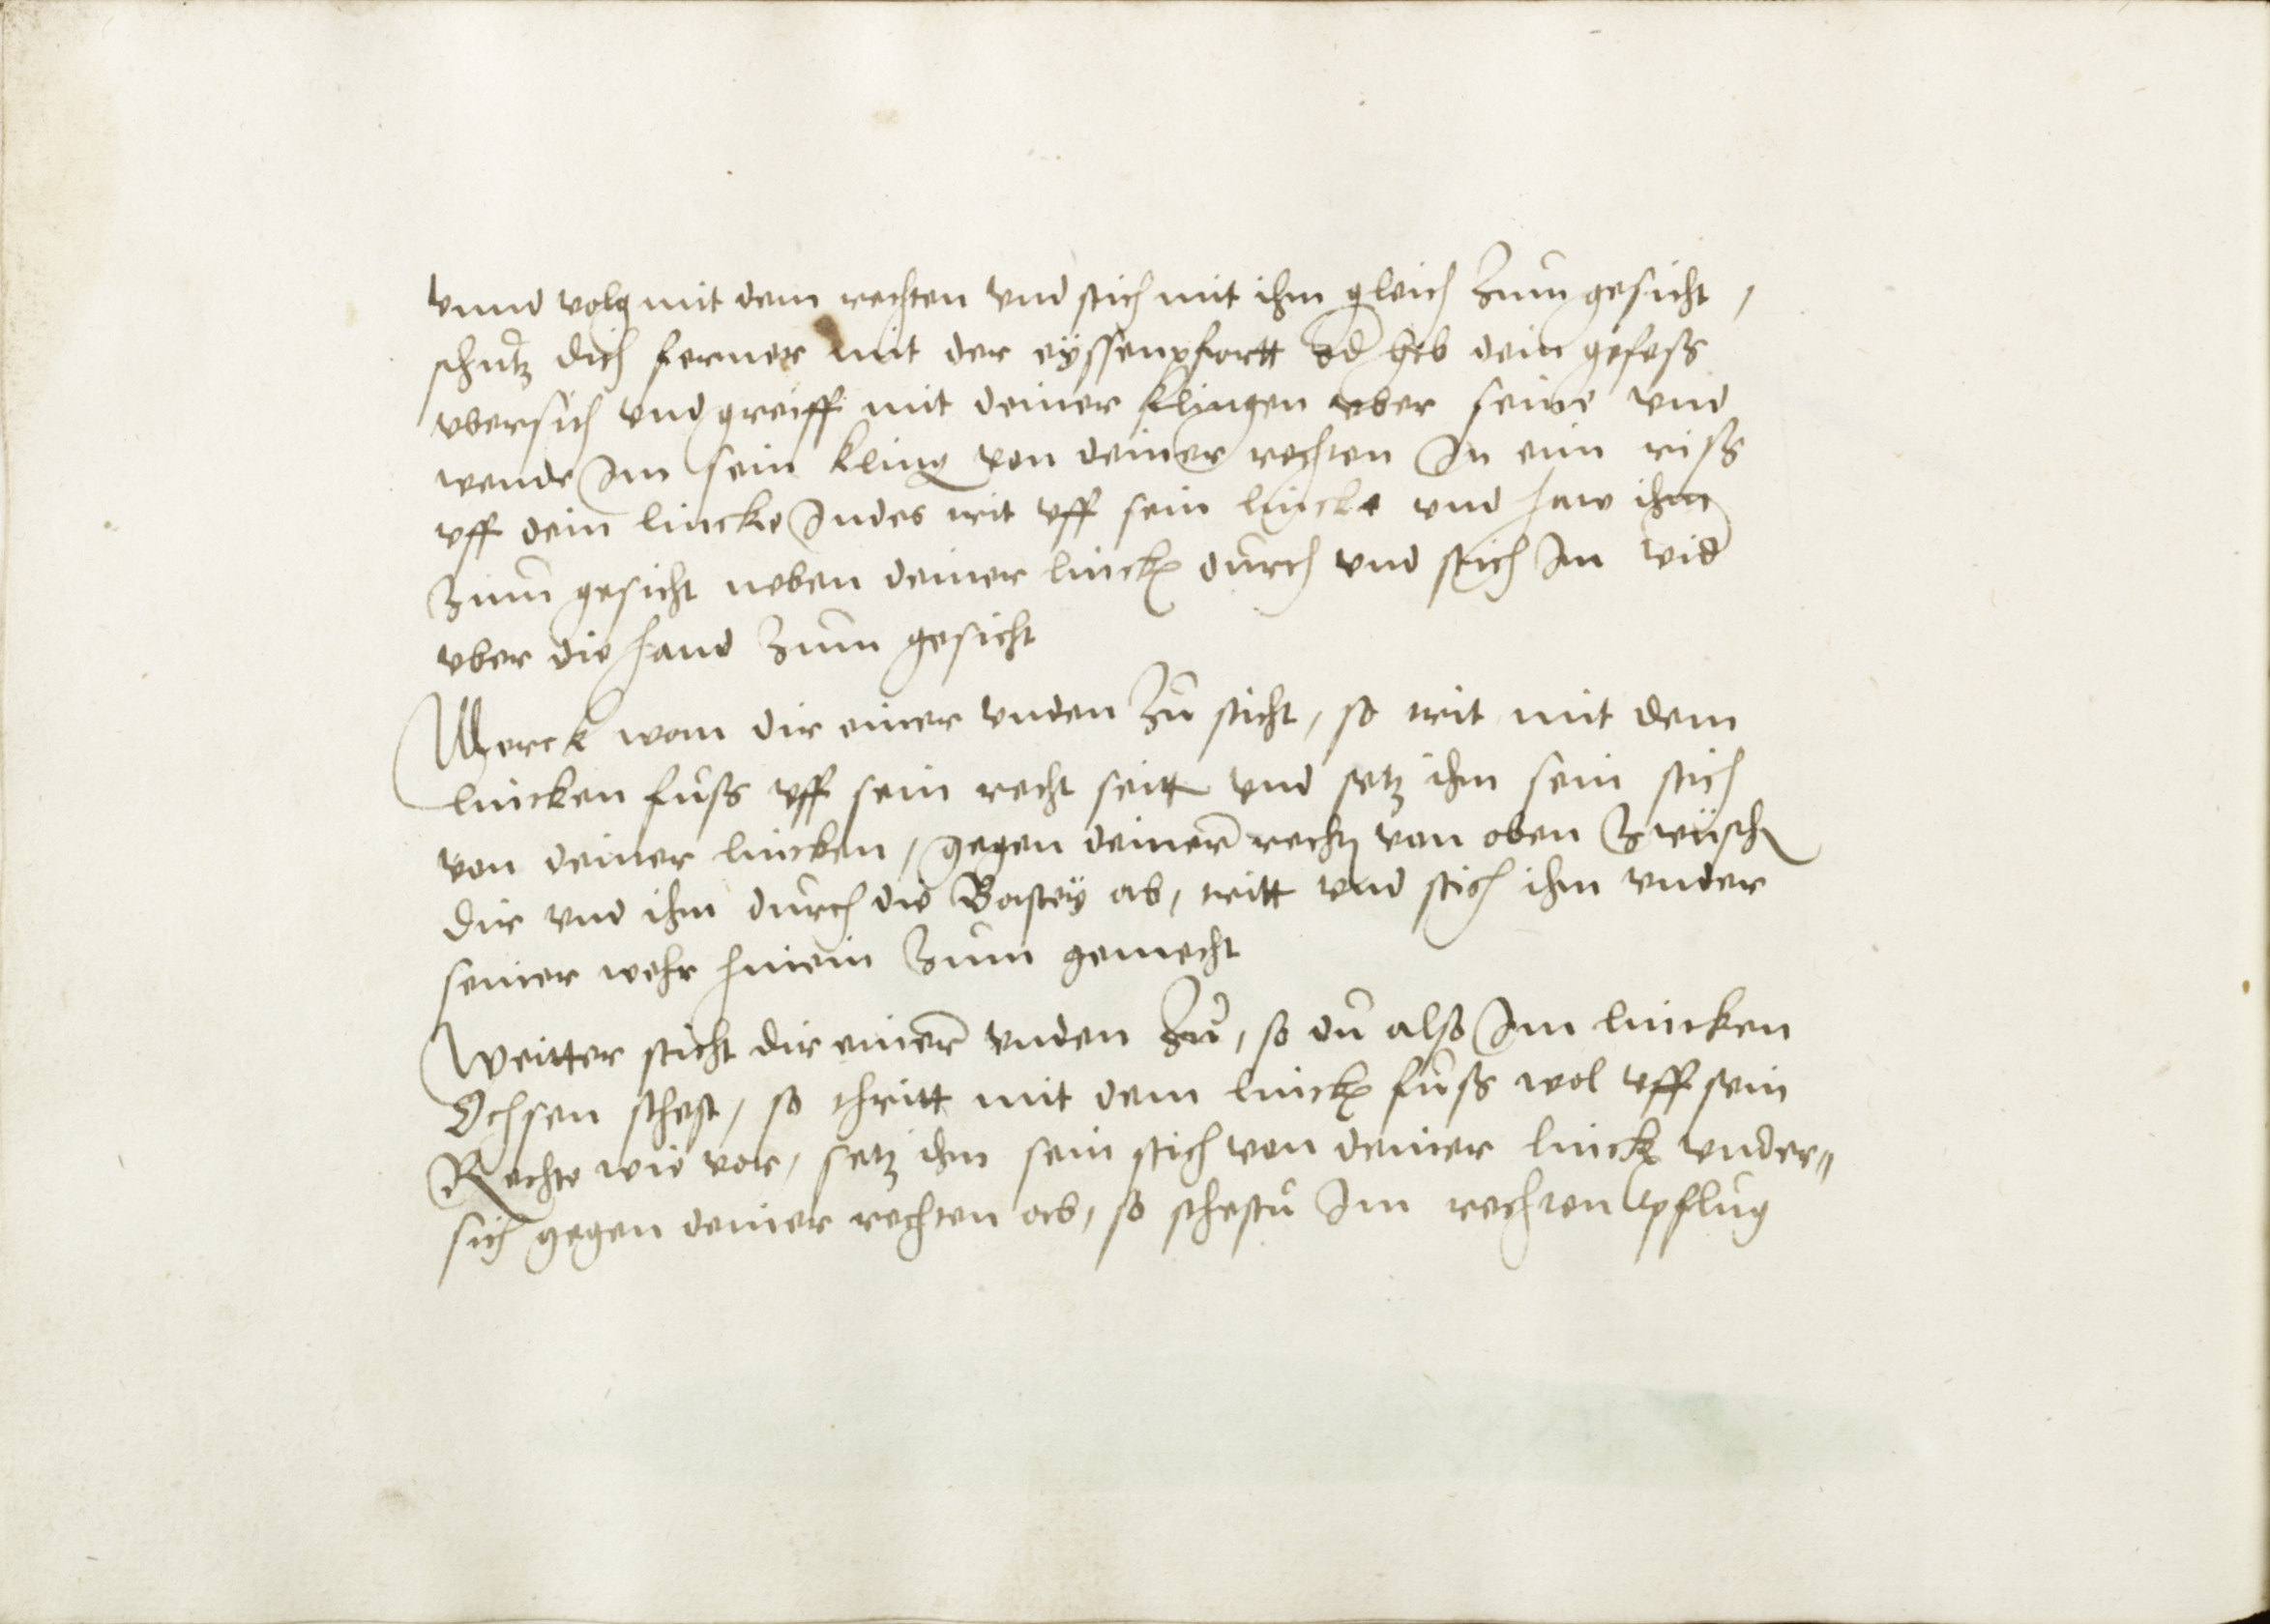 vnnd volg mit dem rechten vnd stich mit ihm gleich zum gesicht,
schutz dich ferner mit der eÿssenpfortt od heb dein gefess
vbersich vnd greiff mit deiner klingen vber seine vnd
wende Im sein kling von deiner rechten In eim riss
vff dein lincke Indes trit vff sein lincke vnd haw ihm
zum gesicht neben deiner linck durch vnd stich Im wid
vber die hand zum gesicht
Merck wan dir einer vnden zu sticht, so trit mit dem
lincken fuss vff sein recht seitt vnd setz ihm sein stich
von deiner lincken, gegen deiner recht von oben zwüsch
dir vnd ihm durch die Basteÿ ab, tritt vnd stich ihm vnder
seiner wehr hinein zum gemecht
Weitter sticht dir einer vnden zu, so du also Im lincken
Ochsen stehst, so thritt mit dem linck fuss wol vff sein
Rechte wie vor, setz ihm sein stich von deiner linck vnder„
sich gegen deiner rechten ab, so stehstu Im rechten pflug